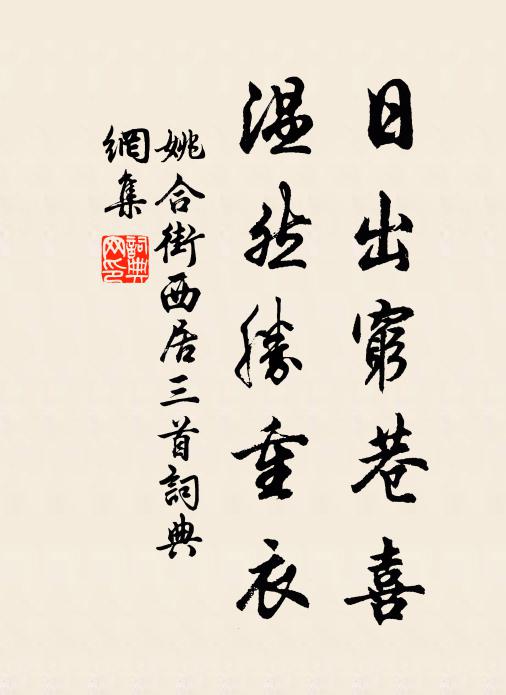 日出窮巷喜
温然勝重衣
姚合街西居三首詞典
網集
詞典
网印